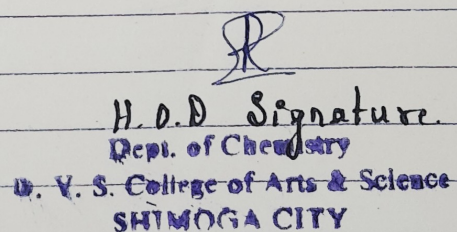 H.O.D Signature.
Dept. of Chemistry
D. V. S. College of Arts & Science
SHIMOGA CITY